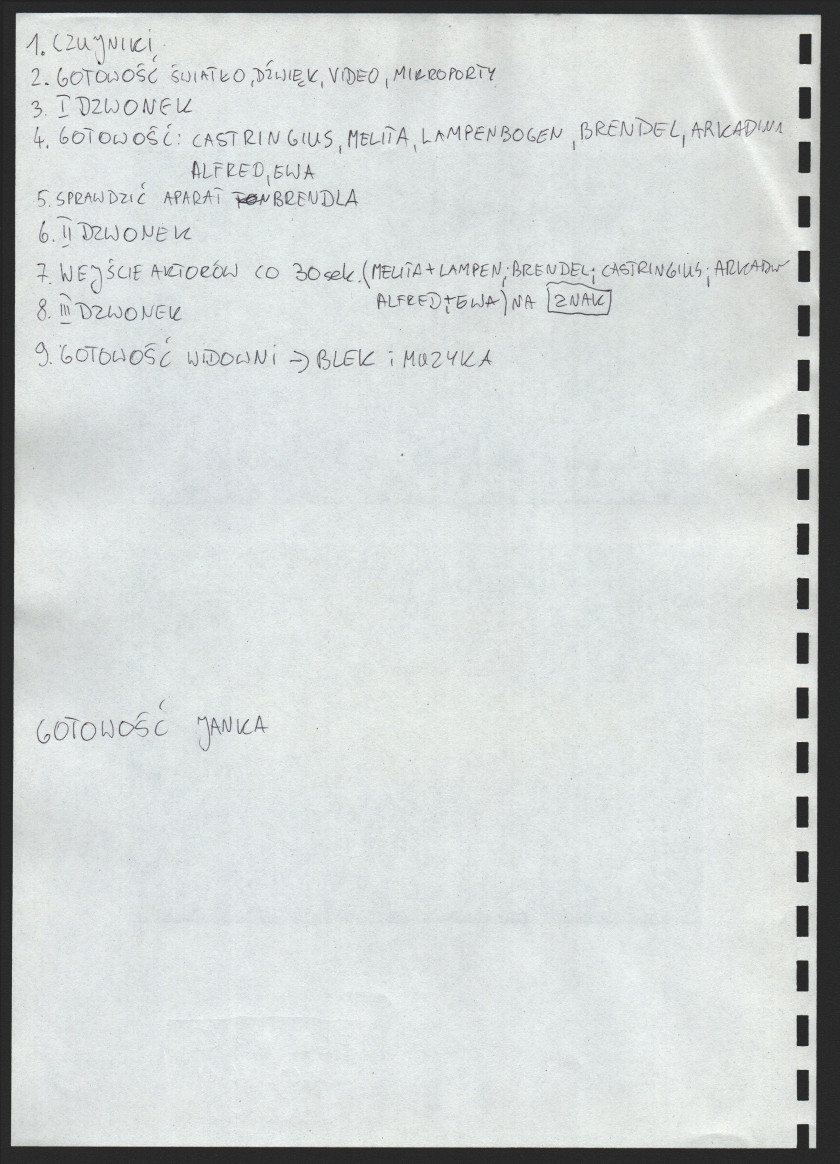 1. CZUJNIKI
2. GOTOWOŚĆ ŚWIATŁO, DŹWIĘK, VIDEO, MIKROPORTY
3. I DZWONEK
4. GOTOWOŚĆ: CASTRINGIUS, MELITA, LAMPENBOGEN, BRENDEL, ARKADINA
ALFRED, EWA
5. SPRAWDZIĆ APARAT BRENDLA
6. II DZWONEK
7. WEJŚCIE AKTORÓW CO 30 sek. (MELITA + LAMPEN; BRENDEL; CASTRINGIUS; ARKADIN
ALFRED + EWA) NA ZNAK
8. III DZWONEK
9. GOTOWOŚĆ WIDOWNI → BLEK i MUZYKA
GOTOWOŚĆ JANKA